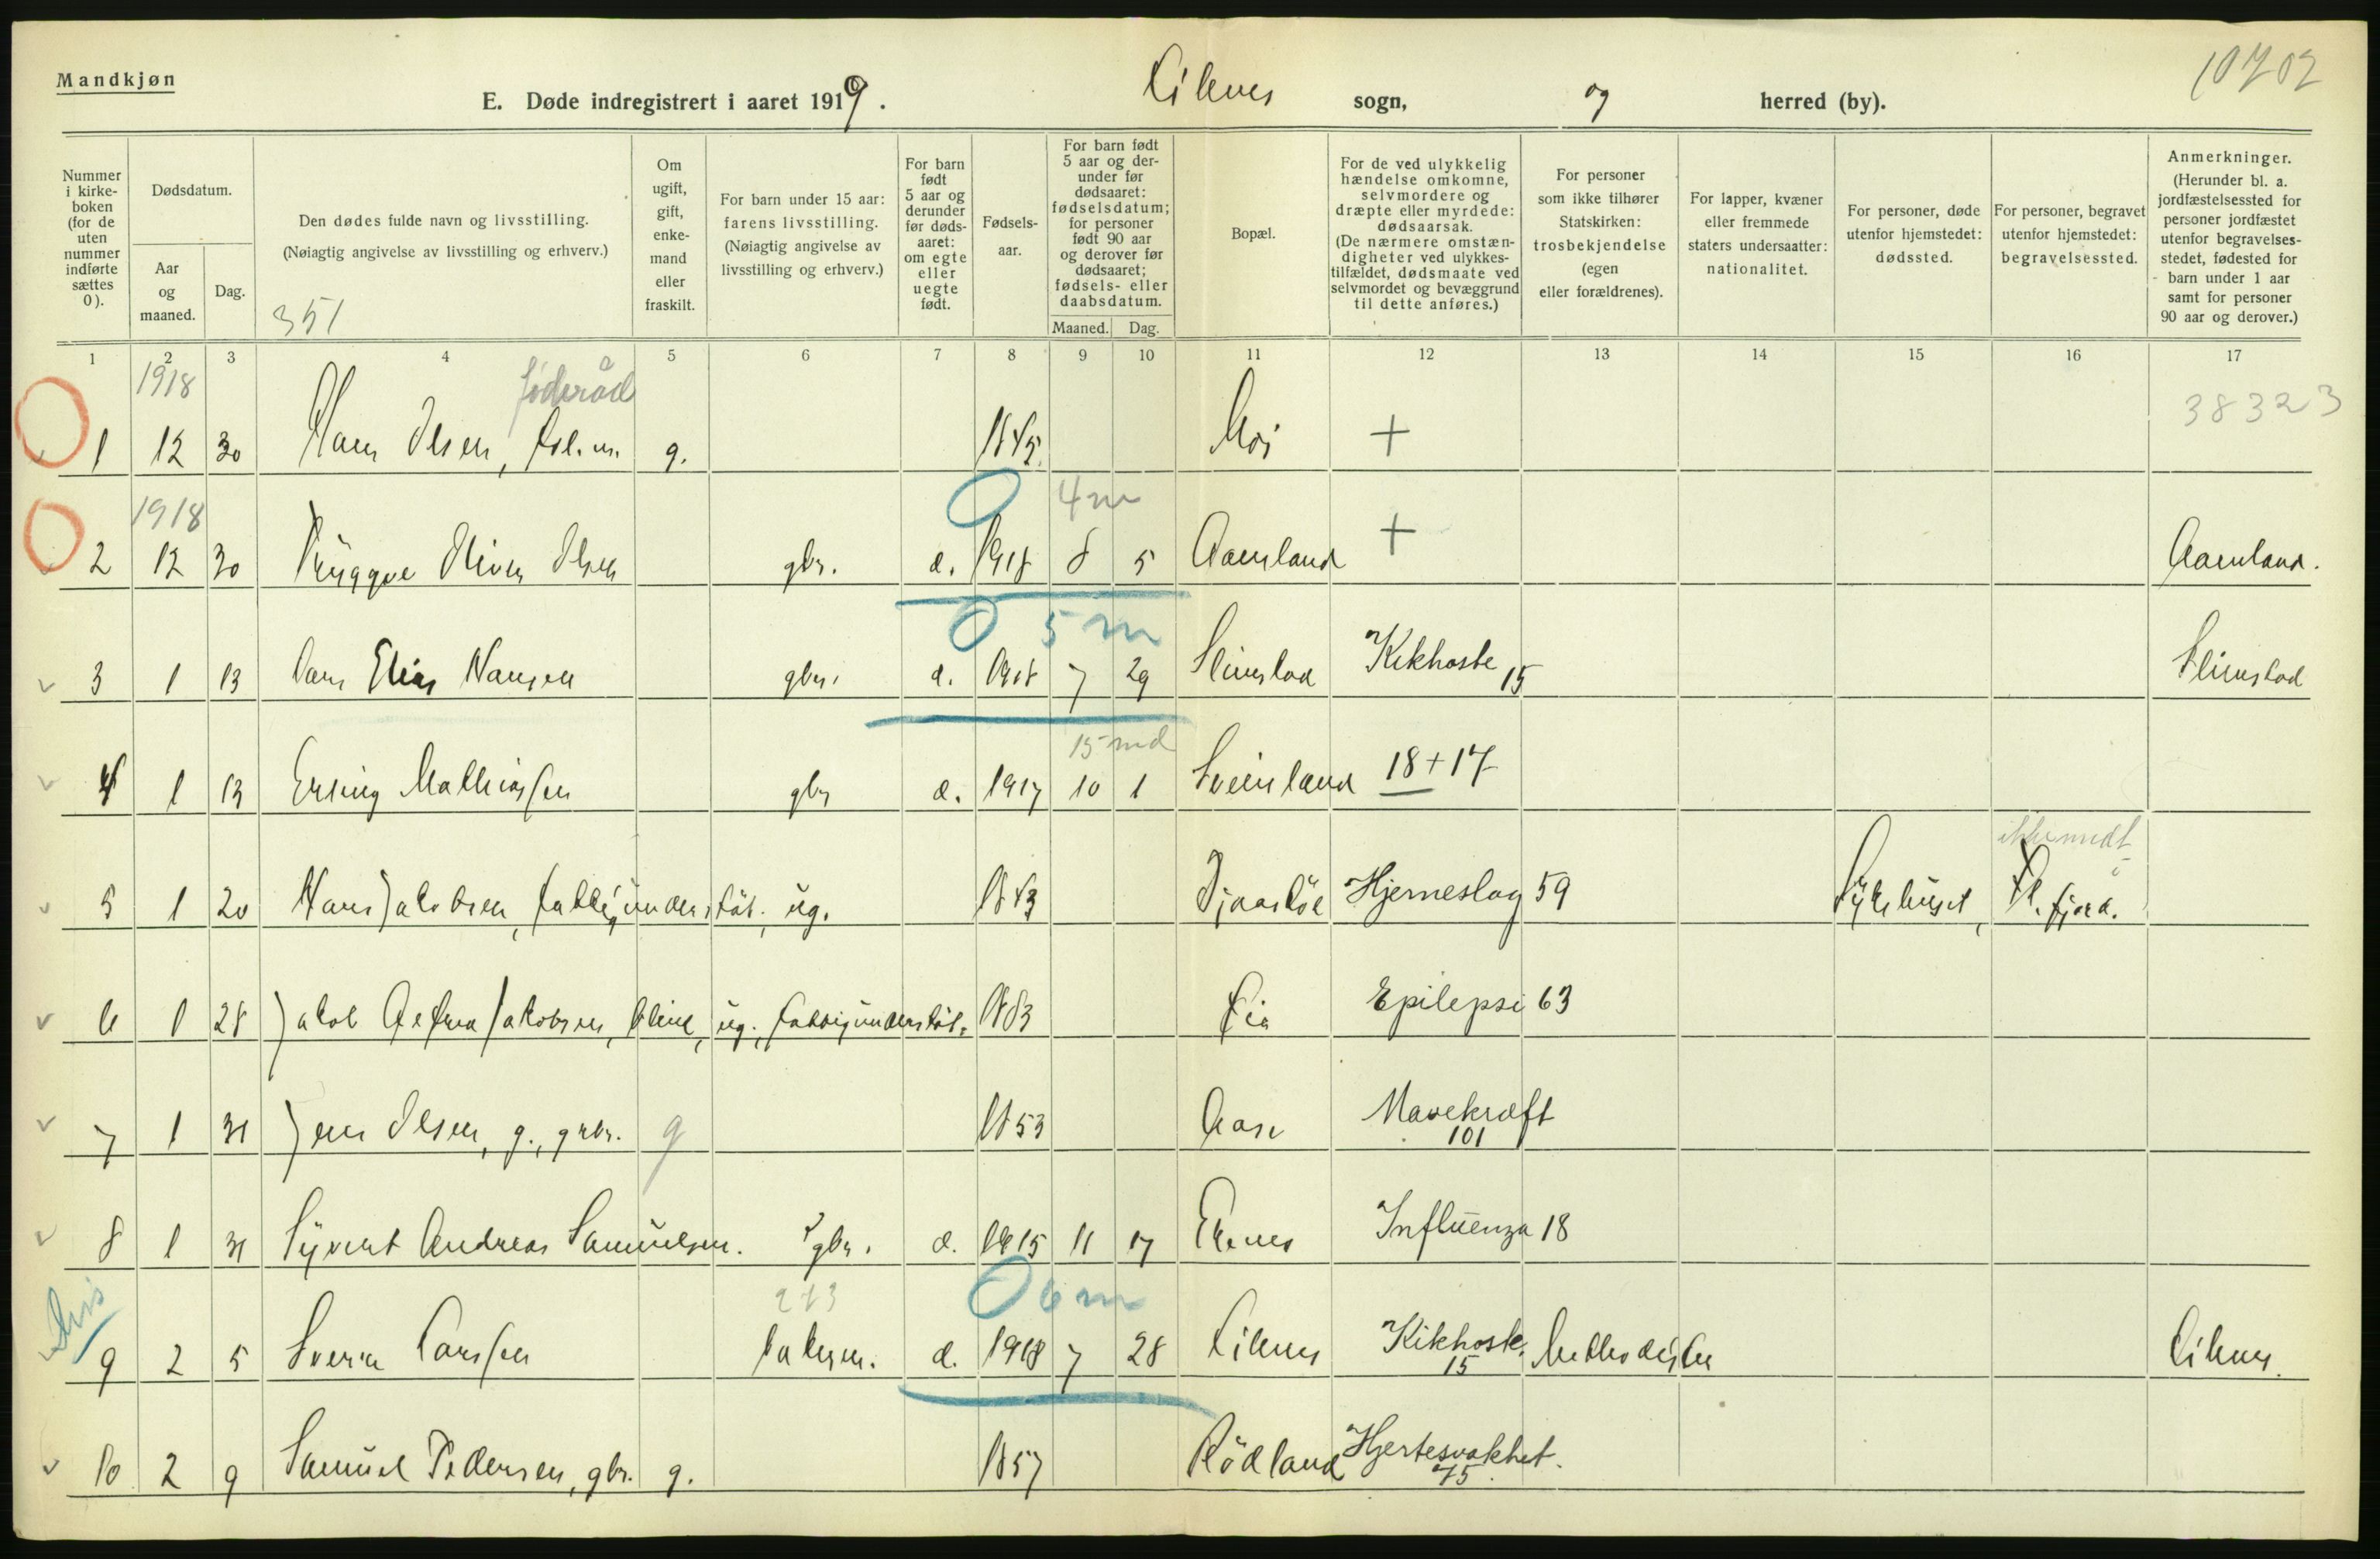 Mandkjøn
10702
E. Døde indregistrert i aaret 1919. Lilenes sogn, og herred (by).
Nummer i kirkeboken (for de uten nummer indførte sættes 0).
Dødsdatum.
Aar og maaned.
Dag.
Den dødes fulde navn og livsstilling.
(Nøiagtig angivelse av livsstilling og erhverv.)
351
Om ugift, gift, enkemand eller fraskilt.
For barn under 15 aar: farens livsstilling. (Nøiagtig angivelse av livsstilling og erhverv.)
For barn født 5 aar og derunder før dødsaaret: om egte eller uegte født.
Fødselsaar.
For barn født 5 aar og derunder før dødsaaret: fødselsdatum; for personer født 90 aar og derover før dødsaaret; fødsels- eller daabsdatum.
Maaned. Dag.
Bopæl.
For de ved ulykkelig hændelse omkomne, selvmordere og dræpte eller myrdede: dødsaarsak. (De nærmere omstændigheter ved ulykkestilfældet, dødsmaate ved selvmordet og bevæggrund til dette anføres.)
For personer som ikke tilhører Statskirken: trosbekjendelse (egen eller forældrenes).
For lapper, kvæner eller fremmede staters undersaatter: nationalitet.
For personer, døde utenfor hjemstedet: dødssted.
For personer, begravet utenfor hjemstedet: begravelsessted.
Anmerkninger. (Herunder bl. a. jordfæstelsessted for personer jordfæstet utenfor begravelsesstedet, fødested for barn under 1 aar samt for personer 90 aar og derover.)
1 2 3 4 5 6 7 8 9 10 11 12 13 14 15 16 17
1918 føderåd 38323
1 12 30 Hans Olsen, g. 1845 Moi +
1918 4 m
2 12 30 Tryggve Oliver Olsen gbr. e. 1918 8 5 Aamland + Aamland.
0 5 m
3 1 13 Lars Elias Hansen gbr. e. 1918 7 29 Slimstad Kikhoste 15 Slimstad
15 md
4 1 13 Erling Mathiassen gbr e. 1917 10 1 Sveinland 18+17
ikke medt
5 1 20 Hans Jakobsen, fattigunderstøt. ug. 1843 Hjerneslag 59 Sykehuset, Fl.fjord.
6 1 28 Jakob Jakobsen, blind, ug., fattigunderstøt. 1883 Lia Epilepsi 63
7 1 31 Jens Olsen, g., grbr. g 1853 Aase Mavekræft
101
8 1 31 Syvert Andreas Samuelsen. gbr. e. 1915 11 17 Ekenes Influenza 18
213 0 6 m
9 2 5 Sverre Larssen e. 1918 7 28 Lilenes Kikhoste. 15 Methodister Lilenes.
10 2 9 Samuel Pedersen, gbr. g. 1857 Rødland Hjertesvakhet.
75